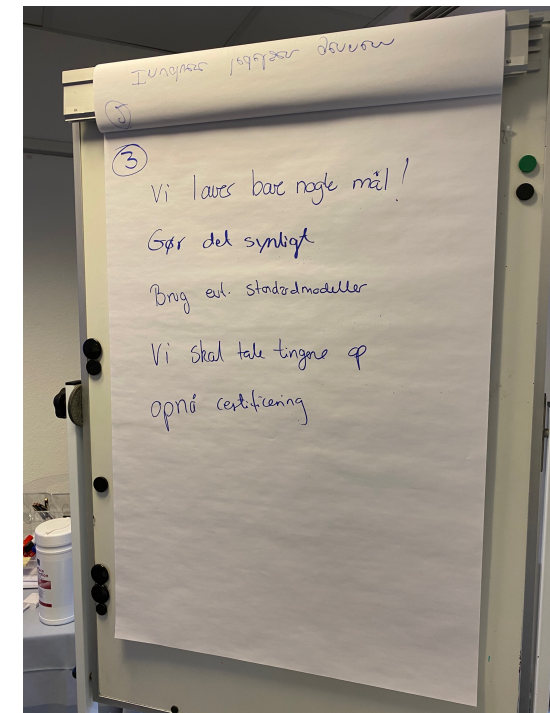 3
Vi laver bare nogle mål!
Gør det synligt
Brug evt. standardmodeller
Vi skal tale tingene op
opnå certificering